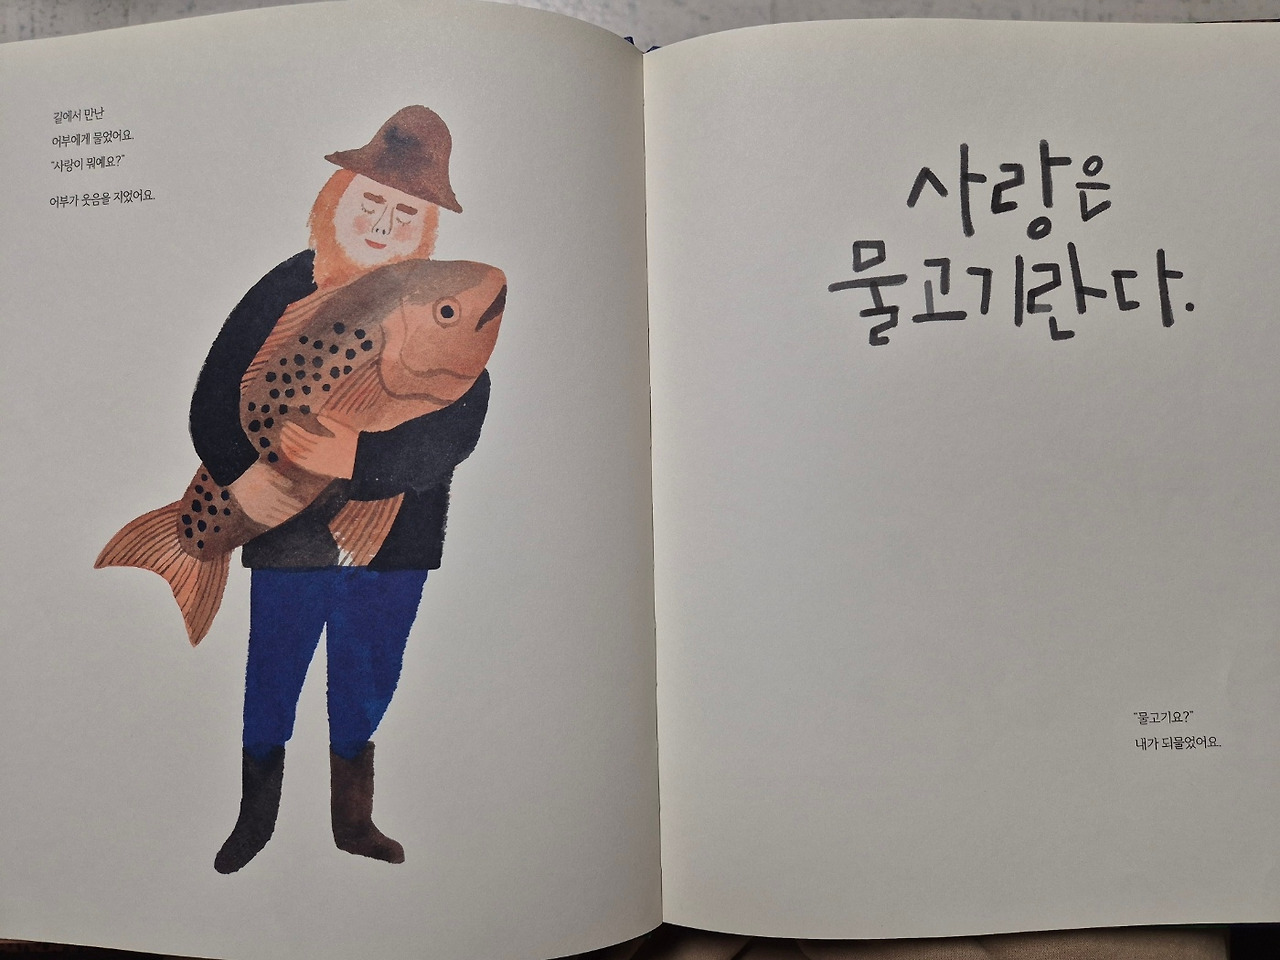 길에서 만난
어부에게 물었어요.
“사랑이 뭐예요?”
어부가 웃음을 지었어요.
사랑은
물고기란다.
“물고기요?”
내가 되물었어요.